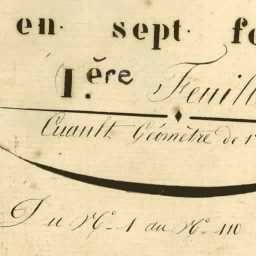 en sept fe
1.ère Feuill
Cuault Géomètre de 1
Du N.o 1 au N.o 110